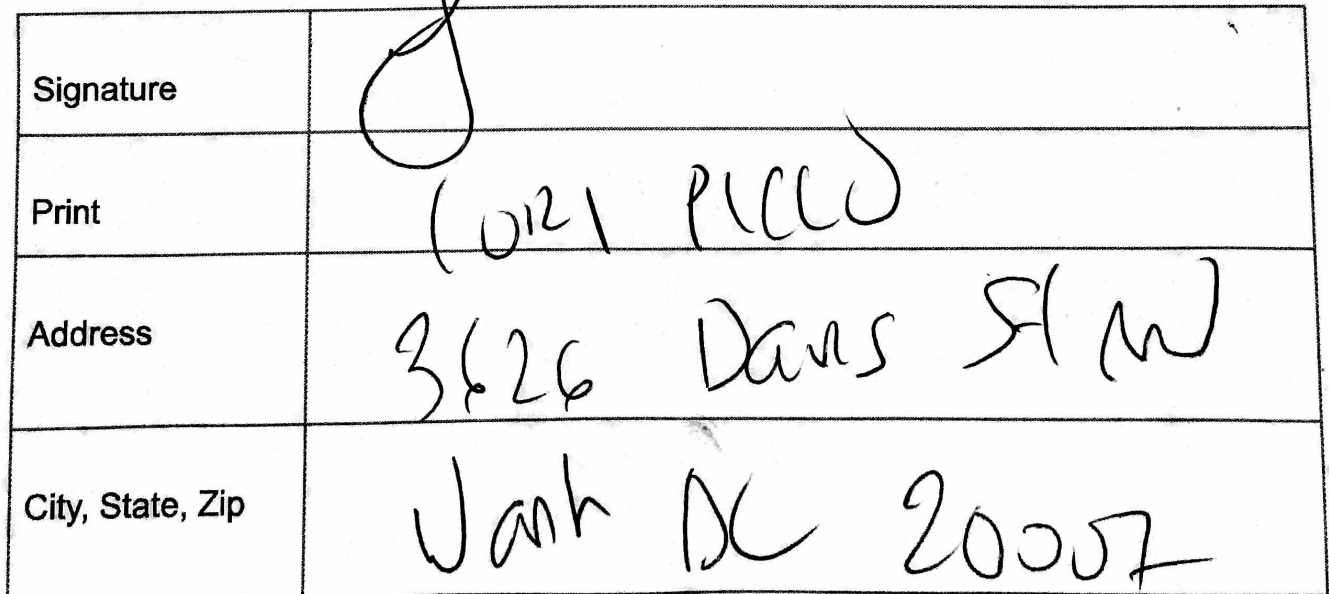 Signature
Print CORI
Address 3626 Davis St NW
City, State, Zip Wash DC 20007